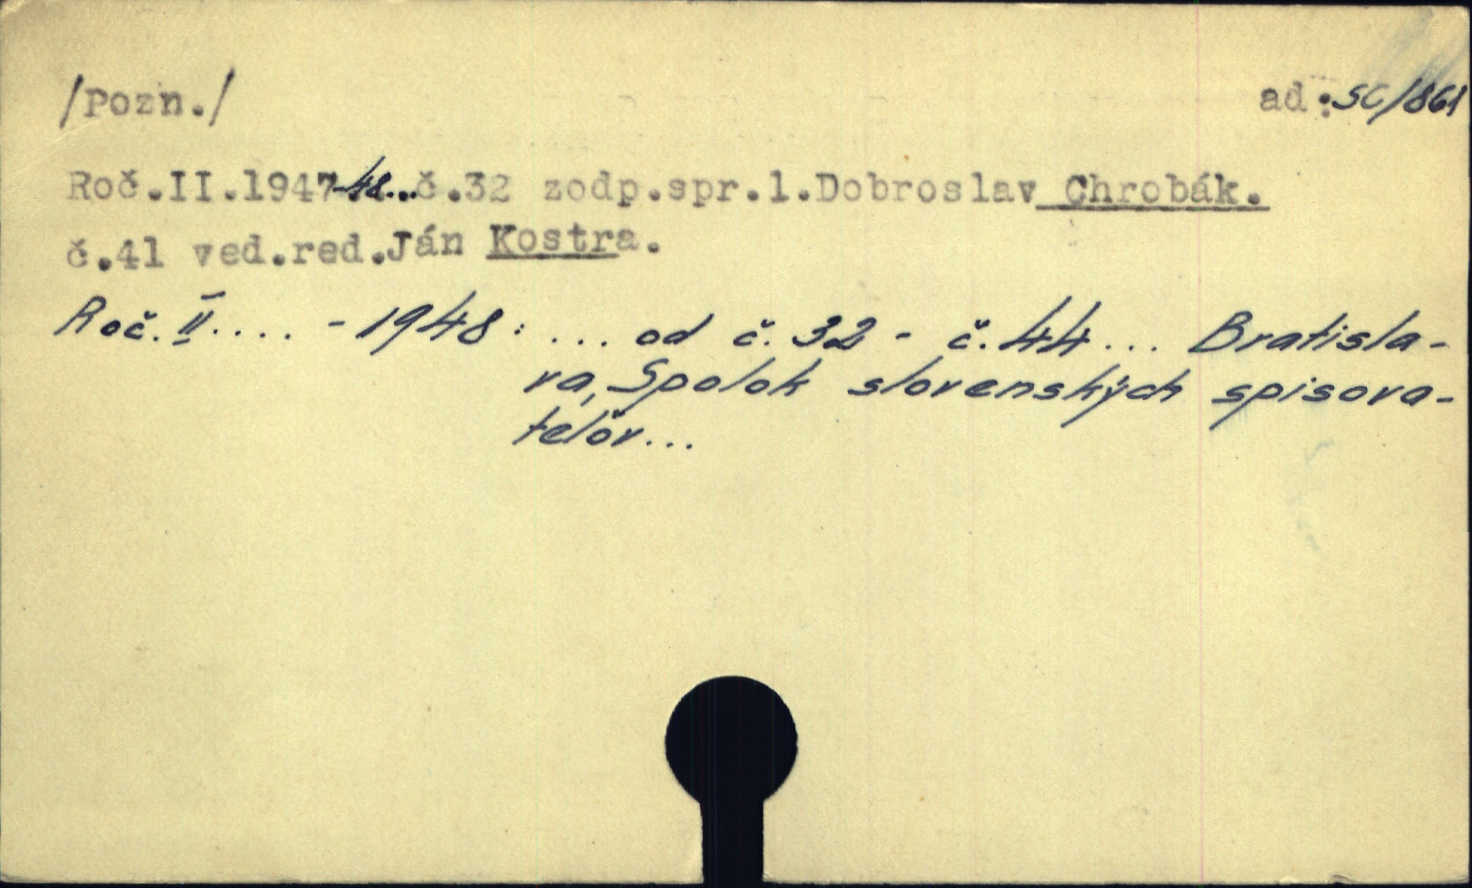 /Pozn./ ad: SC/861
Roč.II.1947-48...č.32 zodp.spr.l.Dobroslav Chrobák.
č.41 ved.red.Ján Kostra.
Roč. II.... - 1948: ... od č. 32 - č. 44 ... Bratisla-
va, Spolok slovenských spisova-
teľov...